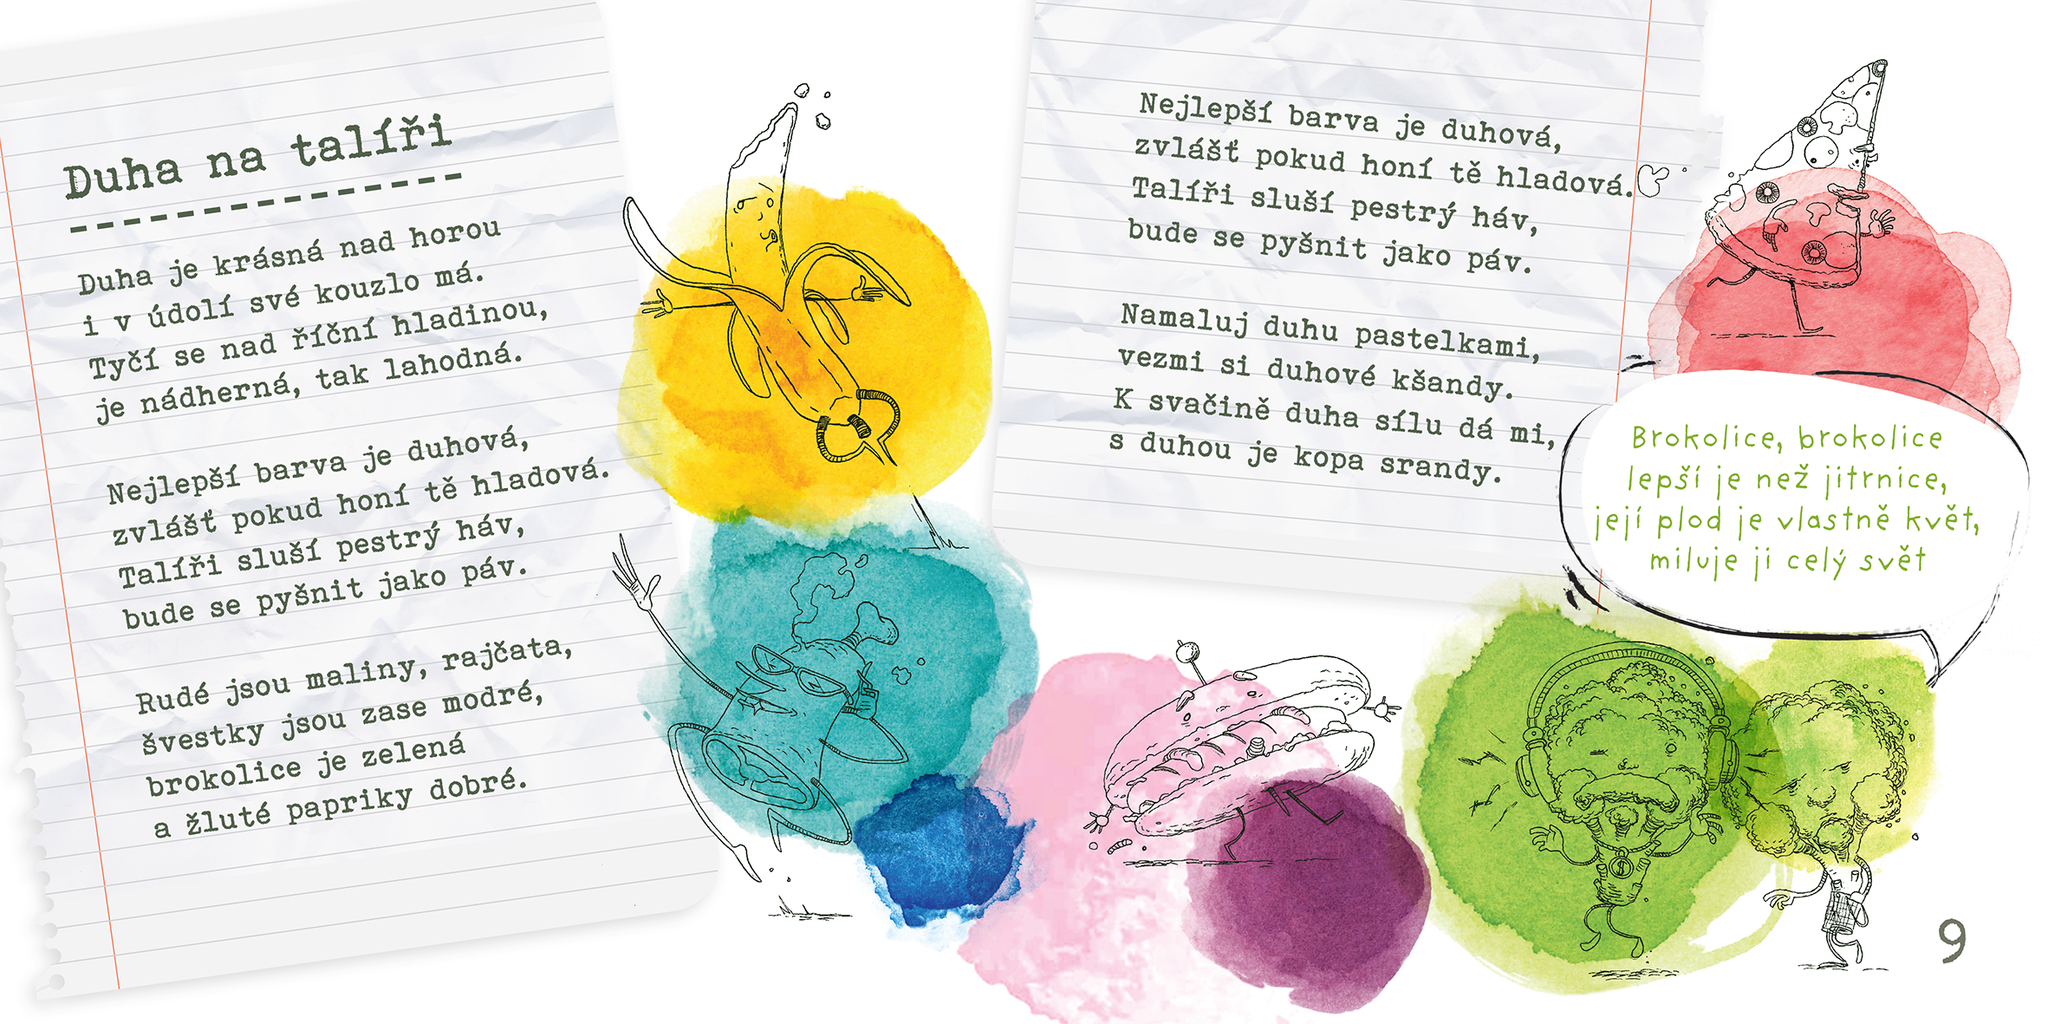 Duha na talíři
Duha je krásná nad horou
i v údolí své kouzlo má.
Tyčí se nad říční hladinou,
je nádherná, tak lahodná.
Nejlepší barva je duhová,
zvlášť pokud honí tě hladová.
Talíři sluší pestrý háv,
bude se pyšnit jako páv.
Rudé jsou maliny, rajčata,
švestky jsou zase modré,
brokolice je zelená
a žluté papriky dobré.
Nejlepší barva je duhová,
zvlášť pokud honí tě hladová.
Talíři sluší pestrý háv,
bude se pyšnit jako páv.
Namaluj duhu pastelkami,
vezmi si duhové kšandy.
K svačině duha sílu dá mi,
s duhou je kopa srandy.
Brokolice, brokolice
lepší je než jitrnice,
její plod je vlastně květ,
miluje ji celý svět
9